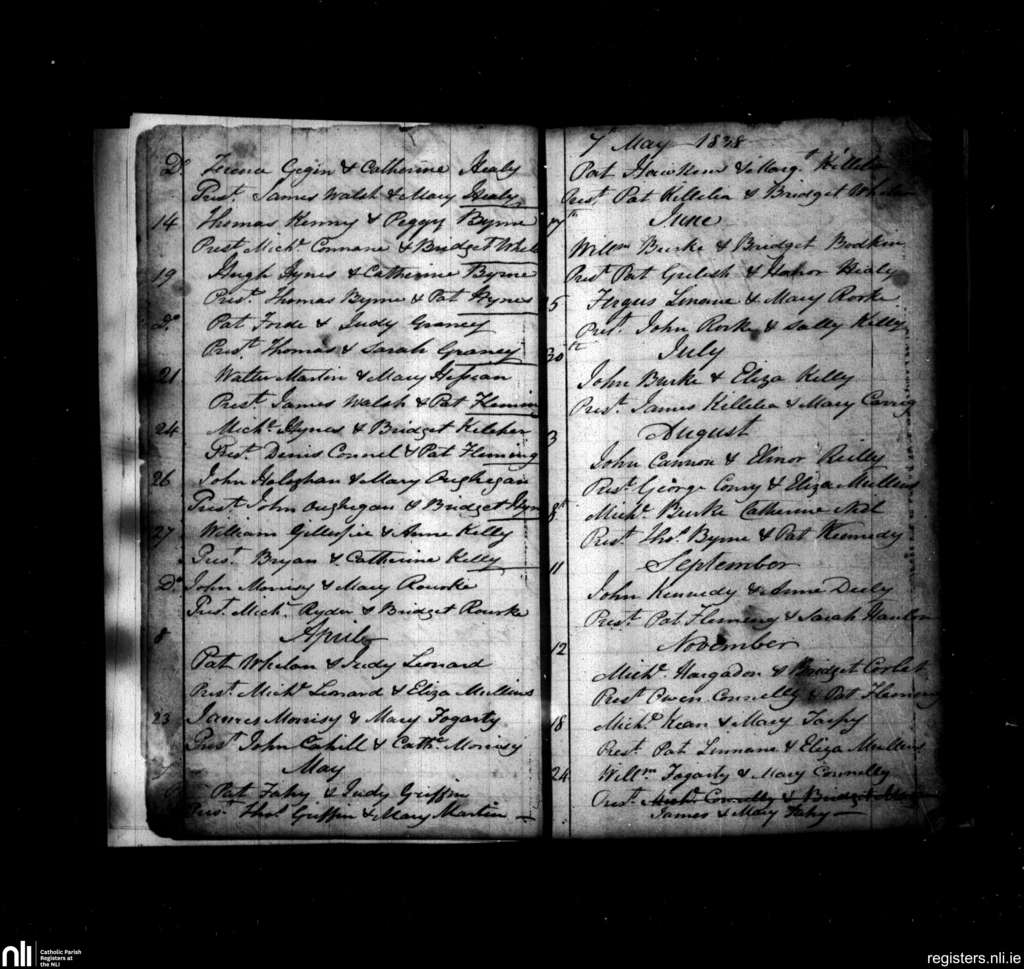 Do. Gegin & Catherine Healy
Prest. James Walsh & Mary Healy
14 Thomas Kenny & Peggy Byrne
Prest Michl. Connane & Bridget
19 Hugh Hynes & Catherine Byrne
Prest. Thomas Byrne & Pat Hynes
Do. Pat Forde & Judy Graney
Prest. Thomas & Sarah Graney
21 Walter Martin & Mary
Prest. James Walsh & Pat Fleming
24 Michl. Hynes & Bridget Kilcher
Prest. Denis Connel & Pat Fleming
26 John Halaghan & Mary Aughegan
Prest John Aughegan & Bridget
27 William Gillespie & Anne Kelly
Prest. Bryan & Catherine Kelly
Do. John Morrisy & Mary Rourke
Prest. Michl. Ryder & Bridget Rourke
April
8 Pat Whelan & Judy Leonard
Prest. Michl. Leonard & Eliza Mullins
23 James Morrisy & Mary Fogarty
Prest John Cahill & Cathe. Morrisy
May
Pat Fahy & Judy Griffin
Prest. Thos. Griffin & Mary Martin
7th May 1838
Pat & Margt. Killelea
Prest. Pat Killelea & Bridget Whelan
June
Willm Burke & Bridget Bodkin
Prest. Pat & Honor Healy
5 Fergus Linane & Mary Rorke
Prest. John Rorke & Sally Kelly
30th July
John Burke & Eliza Kelly
Prest. James Killelea & Mary Carrig
3 August
John Cannon & Elinor Reilly
Prest. George Conry & Eliza Mullins
8th Michl. Burke Catherine
Prest Thos. Byrne & Pat Kennedy
11 September
John Kennedy & Anne Deely
Prest. Pat Fleming & Sarah Hanlon
12 November
Michl. Hargadon & Bridget Corlet
Prest Owen Connelly & Pat Fleming
18 Michl. Kean & Mary Tarpy
Prest. Pat Linnane & Eliza Mullins
24 Willm. Fogarty & Mary Connelly
Prest. Michl. Connelly & Bridget
James & Mary Fahy
nli
Catholic Parish
Registers at
the NLI
registers.nli.ie